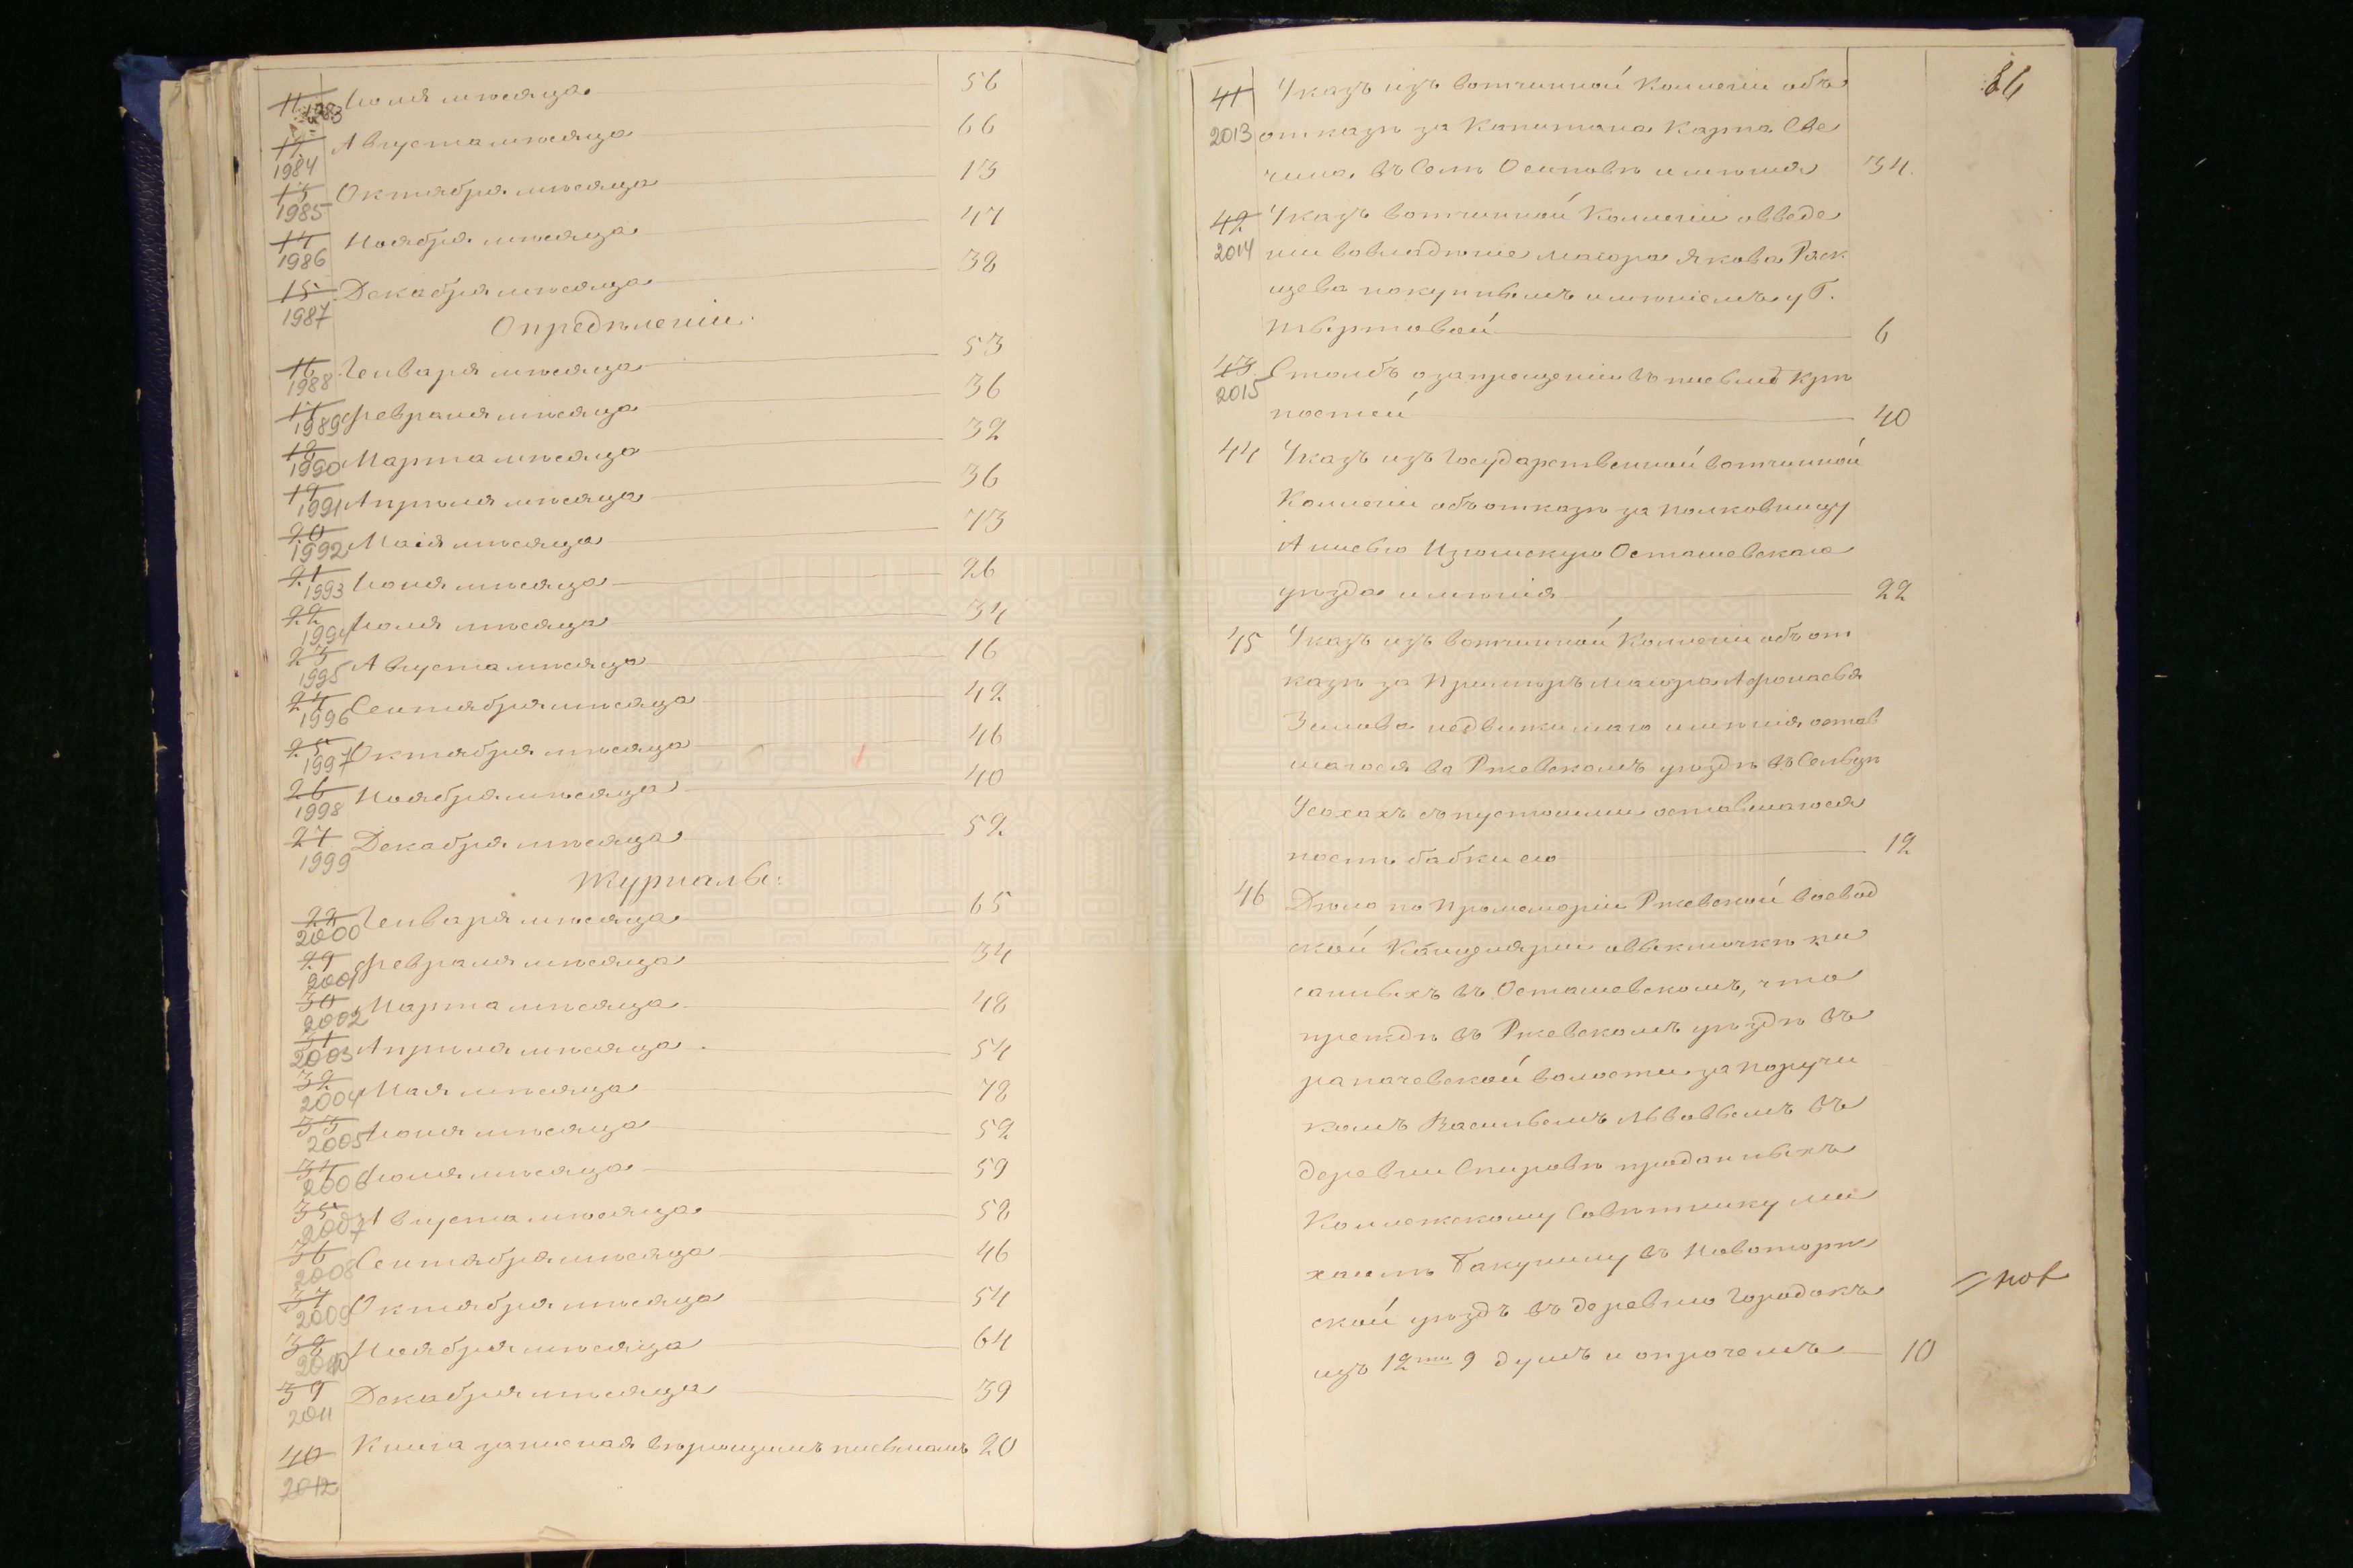 11 1983 Июля месяца 56
12 Августа месяца 66
1984
13 Октября месяца 13
1985
14 Ноября месяца 47
1986
15 Декабря месяца 38
1987
Определеніи.
16 Генваря месяца 53
1988
17 Февраля месяца 36
1989
18 Марта месяца 32
1990
19 Апреля месяца 36
1991
20 Маія месяца 73
1992
21 Июня месяца 26
1993
22 Июля месяца 34
1994
23 Августа месяца 16
1995
24 Сентября месяца 42
1996
25 Октября месяца 46
1997
26 Ноября месяца 40
1998
27 Декабря месяца 52
1999
Журналы:
28 Генваря месяца 65
2000
29 Февраля месяца 34
2001
30 Марта месяца 48
2002
31 Апреля месяца 54
2003
32 Мая месяца 78
2004
33 Июня месяца 52
2005
34 Июля месяца 59
2006
35 Августа месяца 58
2007
36 Сентября месяца 46
2008
37 Октября месяца 54
2009
38 Ноября месяца 64
2010
39 Декабря месяца 39
2011
40 Книга записная верющимъ письмамъ 20
2012
86
41 Указъ изъ вотчинной Коллегіи объ
2013 отказѣ за Капитана Карпа Све
чина въ Селѣ Осиповѣ имѣния 34.
42 Указъ вотчинной Коллегіи о введе
2014 нии вовладѣние маіора Якова
купнымъ имѣніемъ у Г.
6
43 Столбъ о запрещеніи въ письмѣ крѣ
2015 постей 40
44 Указъ изъ Государственной вотчинной
Коллегіи объ отказѣ за полковницу
Осташевскаго
уѣзда имѣнія 22
45 Указъ изъ вотчинной Коллегіи объ от
казѣ за Примѣръ маіора Афонасья
Зилова недвижимаго имѣнія остав
шагося во Ржевскомъ уѣздѣ въ Сельцѣ
Усохахъ съ пустошми оставшагося
послѣ бабки его 12
46 Дѣло по Промеморіи Ржевской воевод
ской Канцеляріи о выключкѣ пи
санныхъ въ Осташевскомъ, что
прежде въ Ржевскомъ уѣздѣ въ
волости за поручи
комъ Васильемъ Львовымъ въ
деревни Спировѣ проданныхъ
Коллежскому Совѣтнику Ми
хаилѣ Бакунину въ Новоторж
ской уѣздъ въ деревню Городокъ
изъ 12ти 9 душъ и опрочемъ 10